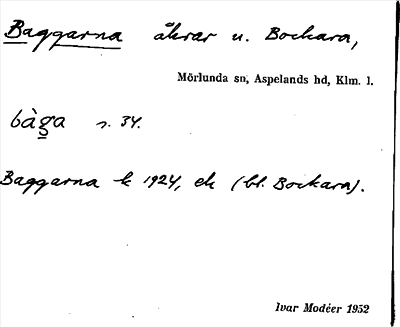 Baggarna åkrar u. Bockara,
Mörlunda sn, Aspelands hd, Klm. l.
bàga s. 34.
Baggarna k 1924, ek (bl. Bockara).
Ivar Modéer 1952